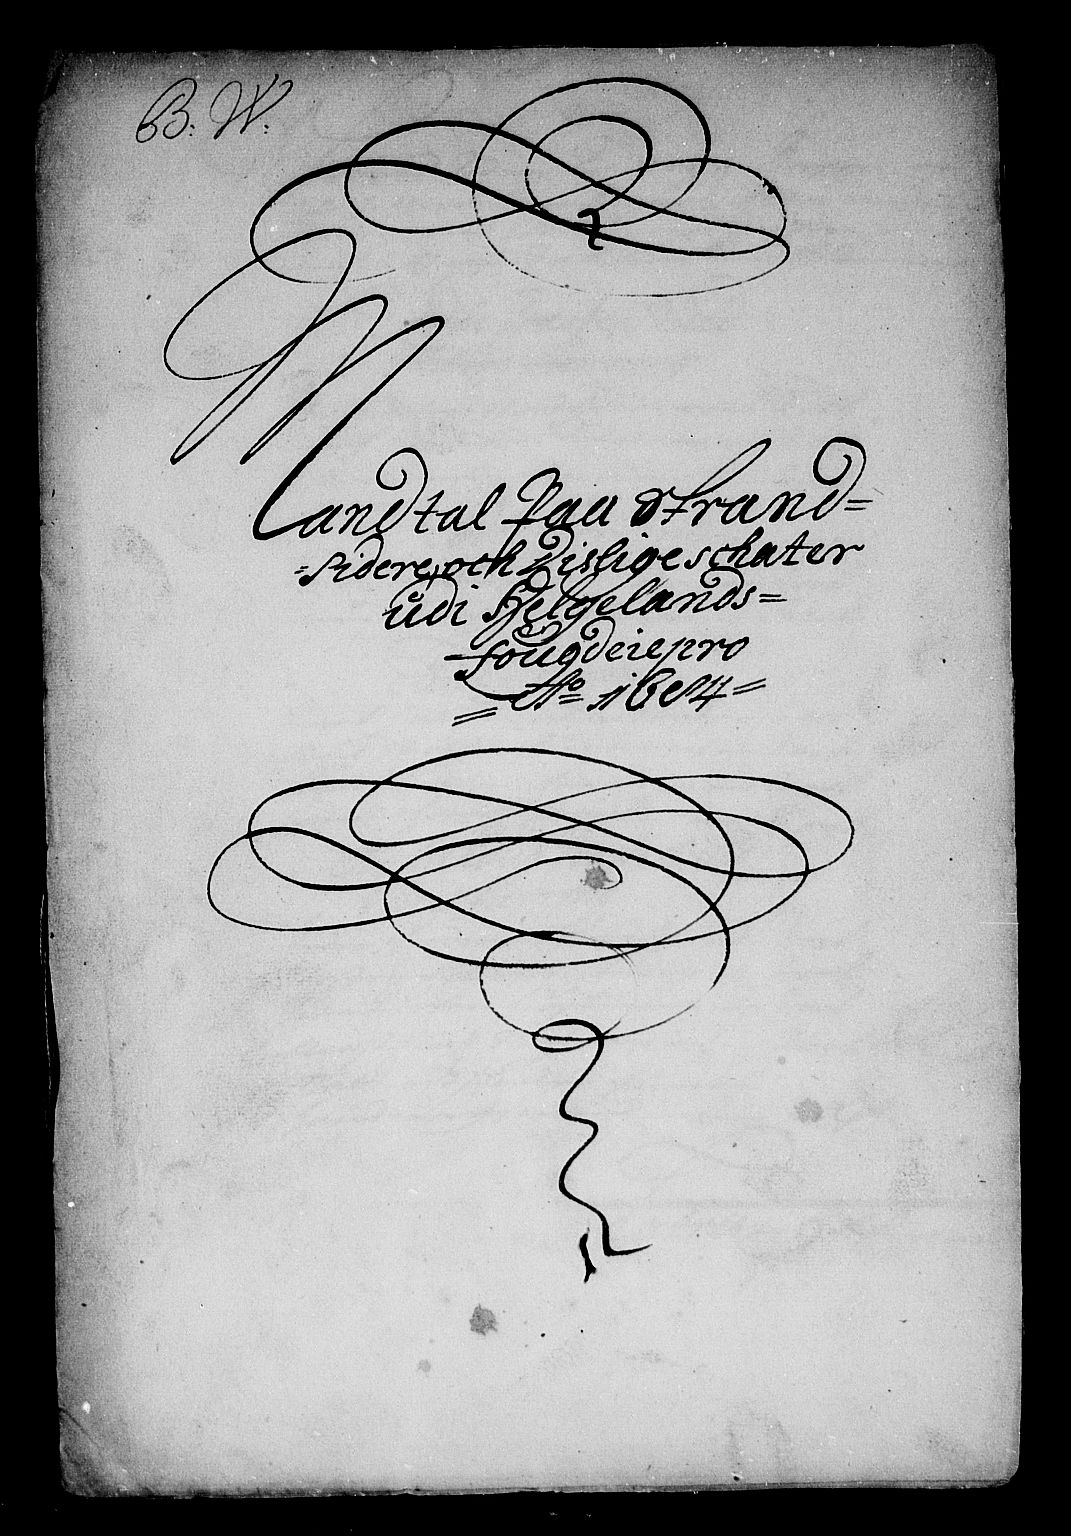 B: W:
Mandtal Paa Strand=
=sidere, och deslige schater
udi Helgelands=
fougdeie pro
Ao 1654